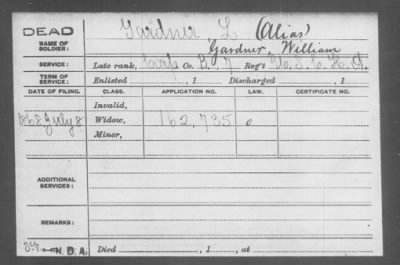 DEAD
NAME OF SOLDIER: Gardner, L (Alias)
Gardner, William
SERVICE: Late rank, Corp Co. B, 7 Reg't U.S.C.H.A.
TERM OF SERVICE: Enlisted , 1 Discharged , 1
DATE OF FILING. CLASS. APPLICATION NO. LAW. CERTIFICATE NO.
Invalid,
1868 July 8 Widow, 162,735
Minor,
ADDITIONAL SERVICES:
REMARKS:
N.D.A. Died , 1 , at